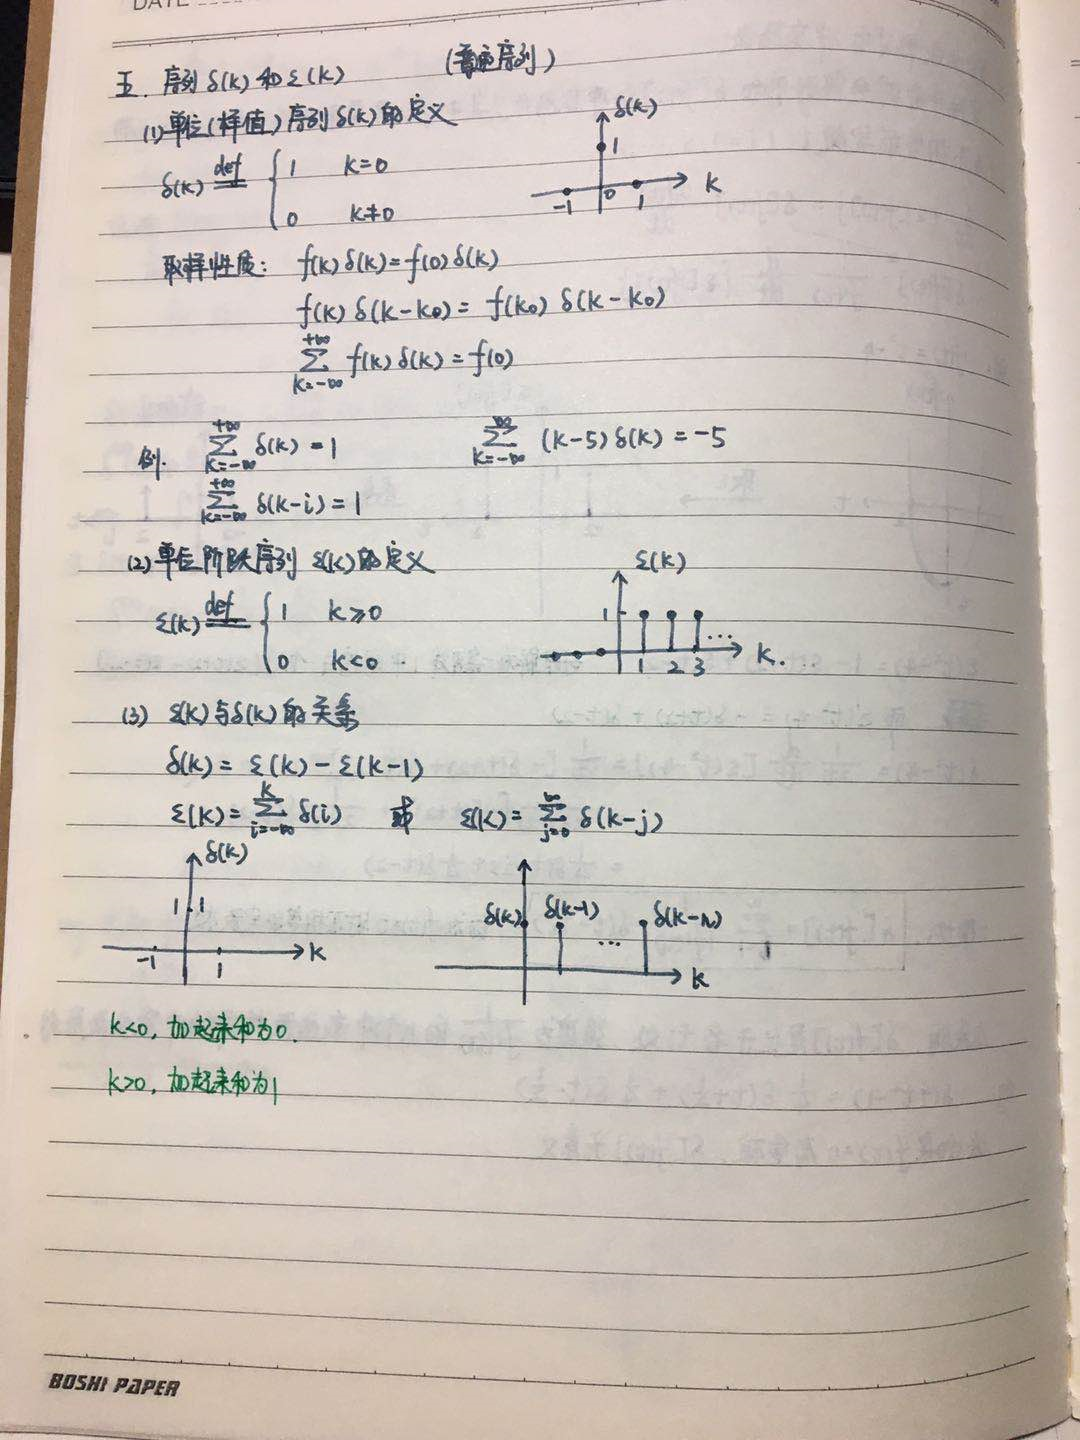 DATE
五. 序列 δ(k) 和 ε(k) (普通序列)
(1) 单位(样值)序列 δ(k) 的定义
δ(k) def { 1 k=0
0 k≠0
δ(k)
1
-1 0 1 k
取样性质: f(k) δ(k) = f(0) δ(k)
f(k) δ(k-k₀) = f(k₀) δ(k-k₀)
+∞ Σ k=-∞ f(k) δ(k) = f(0)
例. +∞ Σ k=-∞ δ(k) = 1 ∞ Σ k=-∞ (k-5) δ(k) = -5
+∞ Σ k=-∞ δ(k-i) = 1
(2) 单位阶跃序列 ε(k) 的定义
ε(k) def { 1 k≥0
0 k<0
ε(k)
1
1 2 3 ... k.
(3) ε(k) 与 δ(k) 的关系
δ(k) = ε(k) - ε(k-1)
ε(k) = k Σ i=-∞ δ(i) 或 ε(k) = ∞ Σ j=0 δ(k-j)
δ(k)
1 1
-1 1 k
δ(k) δ(k-1) ... δ(k-n)
k
k<0, 加起来和为0.
k>0, 加起来和为1
BOSHI PAPER